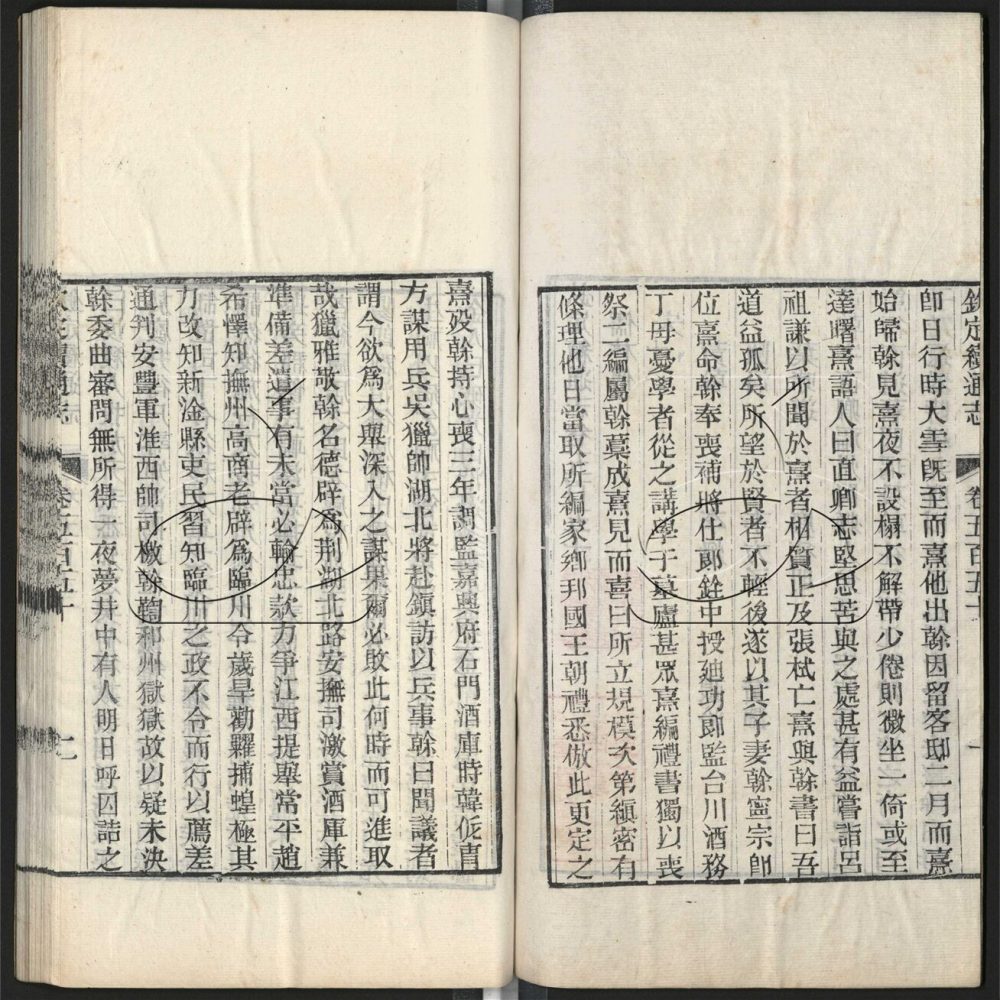 欽定續通志 卷五百五十
卽日行時大雪旣至而熹他出榦因留客邸二月而熹
始歸榦見熹夜不設榻不解帶少倦則微坐一倚或至
達曙熹語人曰直卿志堅思苦與之處甚有益嘗詣呂
祖謙以所聞於熹者相質正及張栻亡熹與榦書曰吾
道益孤矣所望於賢者不輕後遂以其子妻榦寧宗卽
位熹命榦奉喪補將仕郎銓中授廸功郎監台川酒務
丁母憂學者從之講學于墓廬甚眾熹編禮書獨以喪
祭二編屬榦藁成熹見而喜曰所立規模次第縝密有
條理他日當取所編家鄉邦國王朝禮悉倣此更定之
熹歿榦持心喪三年調監嘉興府石門酒庫時韓侂胄
方謀用兵吳獵帥湖北將赴鎮訪以兵事榦曰聞議者
謂今欲爲大舉深入之謀果爾必敗此何時而可進取
哉獵雅敬榦名德辟爲荆湖北路安撫司激賞酒庫兼
準備差遣事有未當必輸忠款力爭江西提舉常平趙
希懌知撫州高商老辟爲臨川令歲旱勸糶捕蝗極其
力改知新淦縣吏民習知臨川之政不令而行以薦差
通判安豐軍淮西帥司檄榦鞫和州獄獄故以疑未決
榦委曲審問無所得一夜夢井中有人明日呼囚詰之